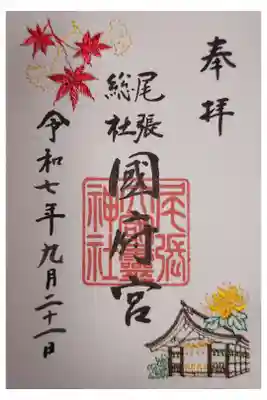 奉拝
尾張
総社
國府宮
尾張大國霊神社
令和七年九月二十一日